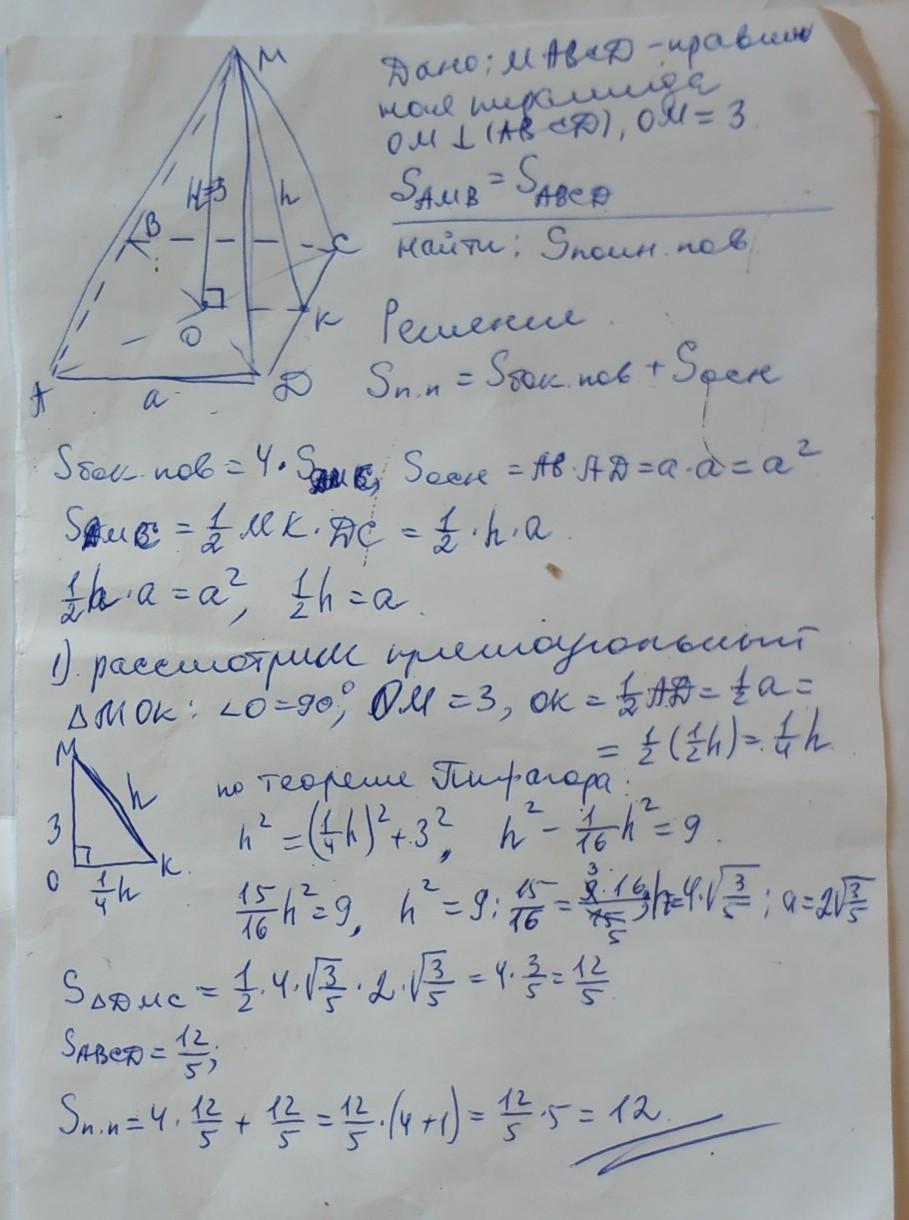 M
Дано: MABCD - правиль
ная пирамида
OM ⊥ (ABCD), OM = 3
S_AMB = S_ABCD
найти: Sполн. пов
H=3
h
B
C
O
K
A
a
D
Решение
Sп.п = Sбок. пов + Sосн
Sбок. пов = 4 · S_DMC, Sосн = AB · AD = a · a = a²
S_DMC = 1/2 MK · DC = 1/2 · h · a
1/2 h · a = a², 1/2 h = a
1). рассмотрим прямоугольный
△MOK: ∠O = 90°, OM = 3, OK = 1/2 AD = 1/2 a =
= 1/2 (1/2 h) = 1/4 h
M
h
3
O
1/4 h
K
по теореме Пифагора:
h² = (1/4 h)² + 3², h² - 1/16 h² = 9
15/16 h² = 9, h² = 9 : 15/16 = 9 3 · 16 / 15 5; h = 4 · √3/5; a = 2√3/5
S△DMC = 1/2 · 4 · √3/5 · 2 · √3/5 = 4 · 3/5 = 12/5
S_ABCD = 12/5;
Sп.п = 4 · 12/5 + 12/5 = 12/5 · (4+1) = 12/5 · 5 = 12